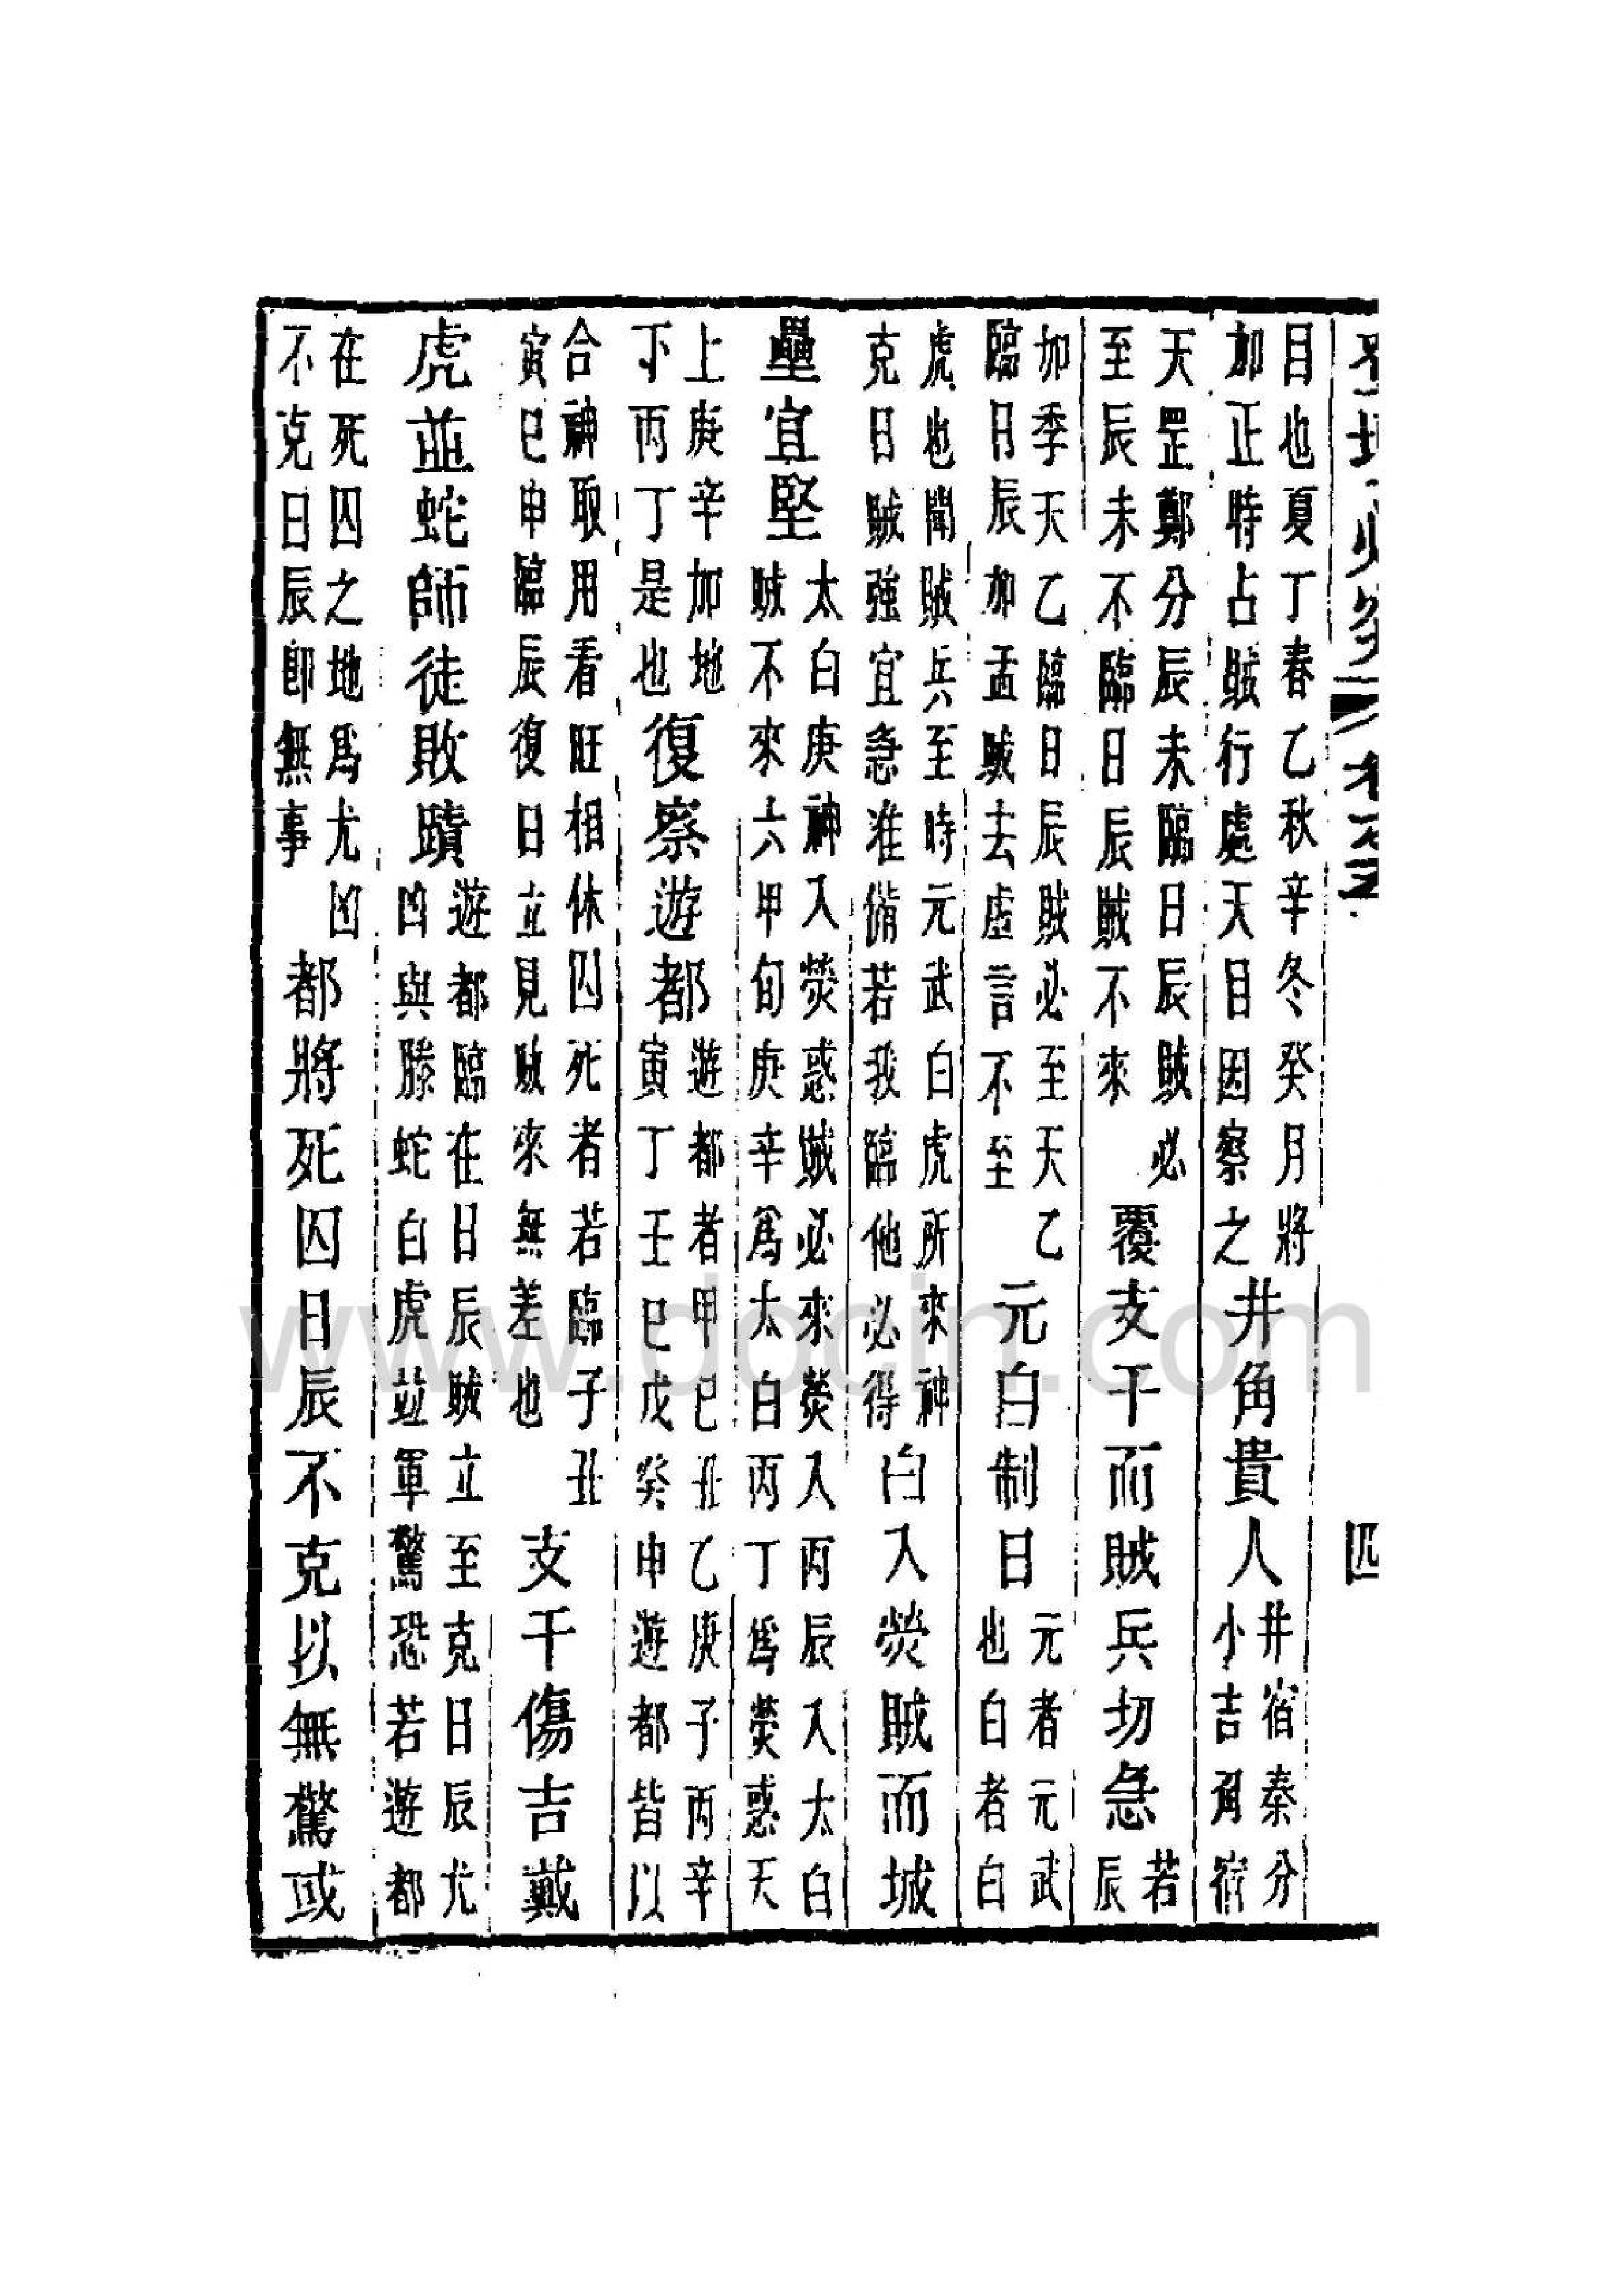 四
目也夏丁春乙秋辛冬癸月將
加正時占賊行處天目因察之
井角貴人
井宿秦分
小吉角宿
天罡鄭分辰未臨日辰賊必
至辰未不臨日辰賊不來
覆支干而賊兵切急
若
辰
加季天乙臨日辰賊必至天乙
臨日辰加孟賊去虛言不至
元白制日
元者元武
也白者白
虎也聞賊兵至時元武白虎所來神
克日賊強宜急准備若我臨他必得
白入熒賊而城
壘宜堅
太白庚神入熒惑賊必來熒入丙辰入太白
賊不來六甲旬庚辛爲太白丙丁爲熒惑天
上庚辛加地
下丙丁是也
復察遊都
遊都者甲己丑乙庚子丙辛
寅丁壬巳戊癸申遊都皆以
合神取用看旺相休囚死者若臨子丑
寅巳申臨辰復日立見賊來無差也
支干傷吉戴
虎並蛇師徒敗蹟
遊都臨在日辰賊立至克日辰尤
凶與螣蛇白虎並軍驚恐若遊都
在死囚之地爲尤凶
不克日辰即無事
都將死囚日辰不克以無驚或
www.docin.com